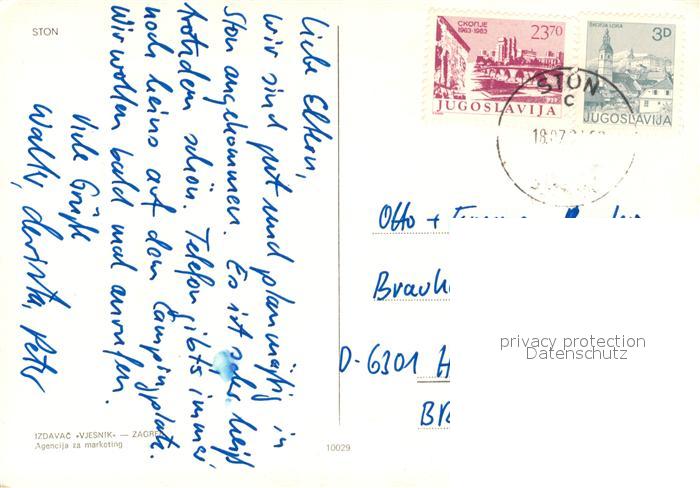 STON
Liebe Eltern,
wir sind gut und planmäßig in
Ston angekommen. Es ist sehr heiß
trotzdem schön. Telefon gibts immer
noch keins auf dem Campingplatz.
Wir wollen bald mal anrufen.
Viele Grüße
Walter, Christa, Peter
IZDAVAČ »VJESNIK« — ZAGREB
Agencija za marketing
10029
СКОПЈЕ
1963-1983
23.70
JUGOSLAVIJA
ŠKOFJA LOKA
3D
JUGOSLAVIJA
STON
C
18.07
Otto +
Brauh
D-6301 H
BR
privacy protection
Datenschutz